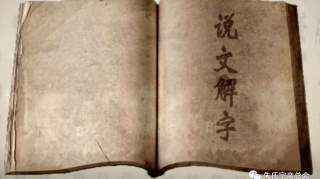 说文解字
朱氏宗亲总会